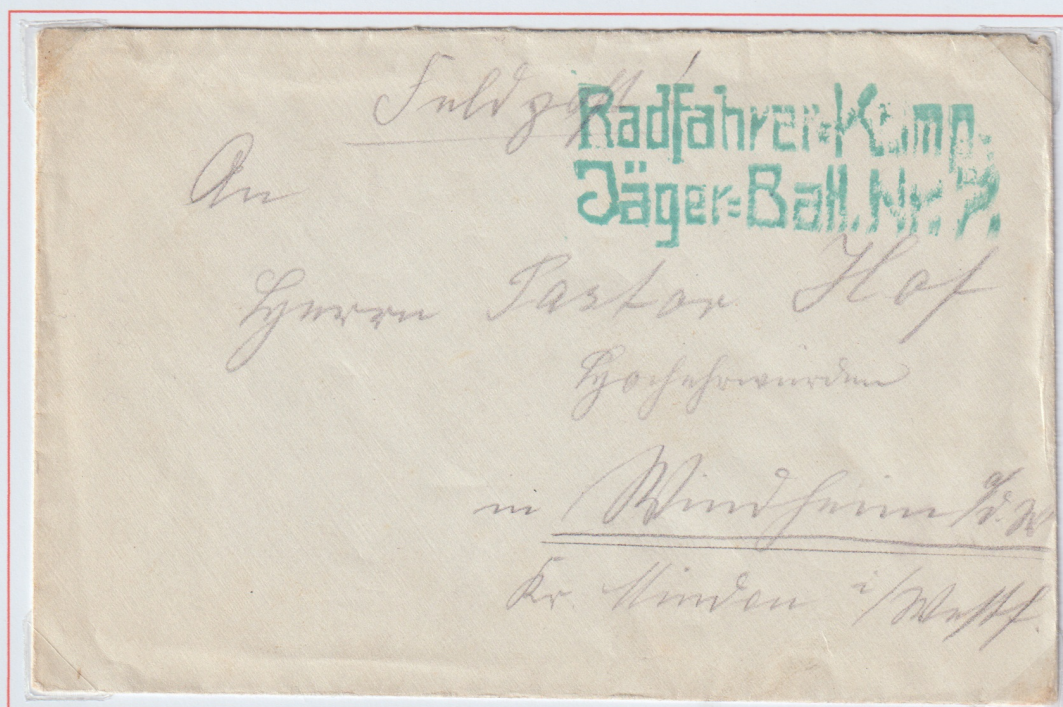 Feldpost!
Radfahrer=Komp.
Jäger=Batl. Nr. 7.
An
Herrn Pastor Hof
Hochehrwürden
in Windheim a/d. W
Kr. Minden i/Westf.